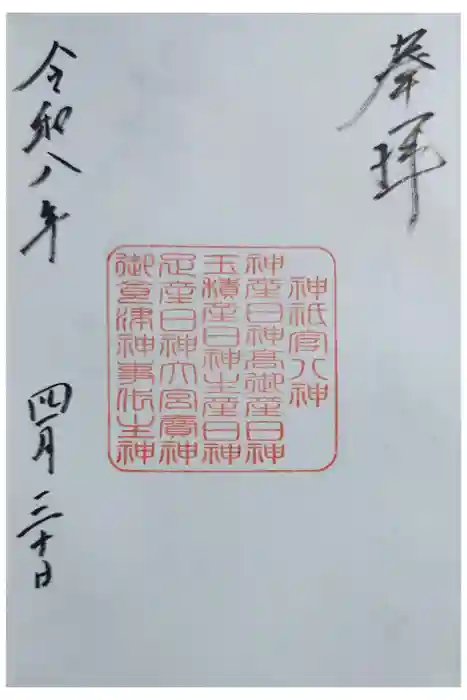 奉拝
神祇官八神
神産日神高御産日神
玉積産日神生産日神
足産日神大宮賣神
御食津神事代主神
令和八年 四月三十日